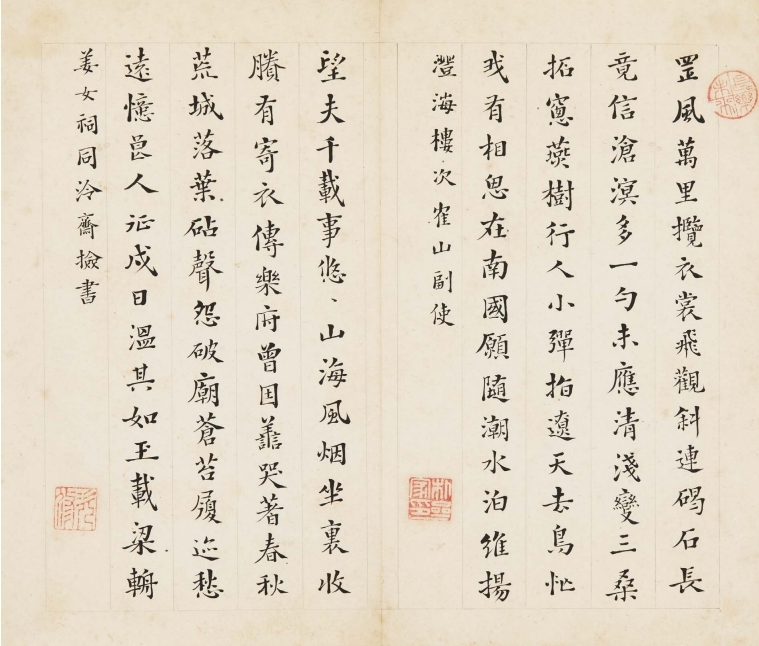 罡風萬里攬衣裳飛觀斜連碣石長
竟信滄溟多一勺未應清淺變三桑
拓窻燕樹行人小彈指遼天去鳥忙
我有相思在南國願隨潮水泊維揚
澄海樓次隺山副使
望夫千載事悠〻山海風烟坐裏收
賸有寄衣傳樂府曾因譱哭著春秋
荒城落葉砧聲怨破廟蒼苔履迹愁
遠憶邑人征戍日溫其如玉載梁輈
姜女祠同泠齋撿書
朴齊家印